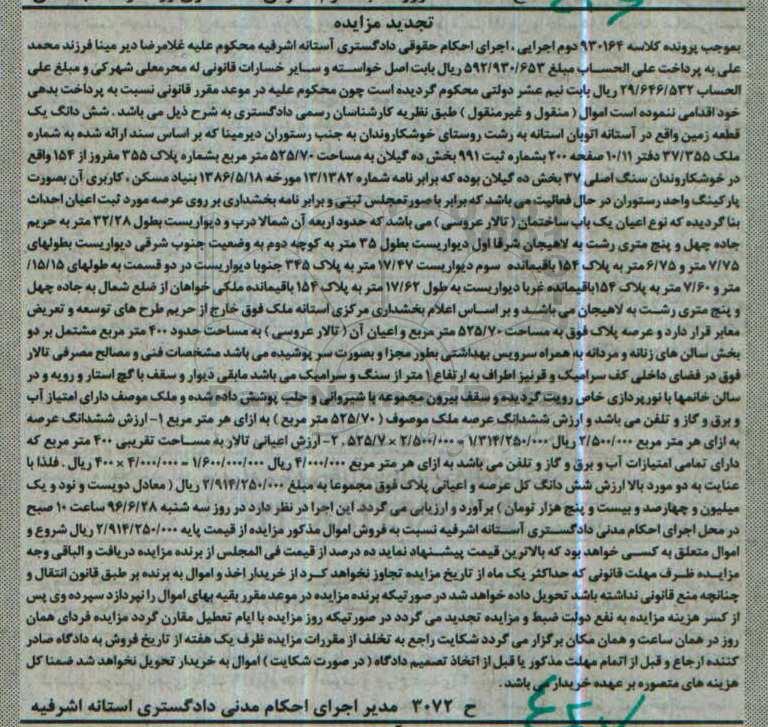 تجدید مزایده
بموجب پرونده کلاسه ۹۳۰۱۶۴ دوم اجرایی ، اجرای احکام حقوقی دادگستری آستانه اشرفیه محکوم علیه غلامرضا دیر مینا فرزند محمد
علی به پرداخت علی الحساب مبلغ ۵۹۲/۹۳۰/۶۵۳ ریال بابت اصل خواسته و سایر خسارات قانونی له محرمعلی شهرکی و مبلغ علی
الحساب ۲۹/۶۴۶/۵۳۲ ریال بابت نیم عشر دولتی محکوم گردیده است چون محکوم علیه در موعد مقرر قانونی نسبت به پرداخت بدهی
خود اقدامی ننموده است اموال ( منقول و غیرمنقول ) طبق نظریه کارشناسان رسمی دادگستری به شرح ذیل می باشد . شش دانگ یک
قطعه زمین واقع در آستانه اتوبان استانه به رشت روستای خوشکاروندان به جنب رستوران دیرمینا که بر اساس سند ارائه شده به شماره
ملک ۳۷/۳۵۵ دفتر ۱۰/۱۱ صفحه ۲۰۰ بشماره ثبت ۹۹۱ بخش ده گیلان به مساحت ۵۲۵/۷۰ متر مربع بشماره پلاک ۳۵۵ مفروز از ۱۵۴ واقع
در خوشکاروندان سنگ اصلی ۳۷ بخش ده گیلان بوده که برابر نامه شماره ۱۳/۱۳۸۲ مورخه ۱۳۸۶/۵/۱۸ بنیاد مسکن ، کاربری آن بصورت
پارکینگ واحد رستوران در حال فعالیت می باشد که برابر با صورتمجلس ثبتی و برابر نامه بخشداری بر روی عرصه مورد ثبت اعیان احداث
بنا گردیده که نوع اعیان یک باب ساختمان ( تالار عروسی ) می باشد که حدود اربعه آن شمالا درب و دیواریست بطول ۳۲/۲۸ متر به حریم
جاده چهل و پنج متری رشت به لاهیجان شرقا اول دیواریست بطول ۳۵ متر به کوچه دوم به وضعیت جنوب شرقی دیواریست بطولهای
۷/۷۵ متر و ۶/۷۵ متر به پلاک ۱۵۴ باقیمانده سوم دیواریست ۱۷/۴۷ متر به پلاک ۳۴۵ جنوبا دیواریست در دو قسمت به طولهای ۱۵/۱۵/
متر و ۷/۶۰ متر به پلاک ۱۵۴ باقیمانده غربا دیواریست به طول ۱۷/۶۲ متر به پلاک ۱۵۴ باقیمانده ملکی خواهان از ضلع شمال به جاده چهل
و پنج متری رشت به لاهیجان می باشد و بر اساس اعلام بخشداری مرکزی آستانه ملک فوق خارج از حریم طرح های توسعه و تعریض
معابر قرار دارد و عرصه پلاک فوق به مساحت ۵۲۵/۷۰ متر مربع و اعیان آن ( تالار عروسی ) به مساحت حدود ۴۰۰ متر مربع مشتمل بر دو
بخش سالن های زنانه و مردانه به همراه سرویس بهداشتی بطور مجزا و بصورت سر پوشیده می باشد مشخصات فنی و مصالح مصرفی تالار
فوق در فضای داخلی کف سرامیک و قرنیز اطراف به ارتفاع ۱ متر از سنگ و سرامیک می باشد مابقی دیوار و سقف با گچ استار و رویه و در
سالن خانمها با نورپردازی خاص رویت گردیده و سقف بیرون مجموعه با شیروانی و حلب پوشش داده شده و ملک موصف دارای امتیاز آب
و برق و گاز و تلفن می باشد و ارزش ششدانگ عرصه ملک موصوف ( ۵۲۵/۷۰ متر مربع ) به ازای هر متر مربع ۱- ارزش ششدانگ عرصه
به ازای هر متر مربع ۲/۵۰۰/۰۰۰ ریال ۱/۳۱۴/۲۵۰/۰۰۰ = ۲/۵۰۰/۰۰۰ × ۵۲۵/۷ . ۲- ارزش اعیانی تالار به مساحت تقریبی ۴۰۰ متر مربع که
دارای تمامی امتیازات آب و برق و گاز و تلفن می باشد به ازای هر متر مربع ۴/۰۰۰/۰۰۰ ریال ۱/۶۰۰/۰۰۰/۰۰۰ = ۴/۰۰۰/۰۰۰ × ۴۰۰ ریال . فلذا با
عنایت به دو مورد بالا ارزش شش دانگ کل عرصه و اعیانی پلاک فوق مجموعا به مبلغ ۲/۹۱۴/۲۵۰/۰۰۰ ریال ( معادل دویست و نود و یک
میلیون و چهارصد و بیست و پنج هزار تومان ) برآورد و ارزیابی می گردد. این اجرا در نظر دارد در روز سه شنبه ۹۶/۶/۲۸ ساعت ۱۰ صبح
در محل اجرای احکام مدنی دادگستری آستانه اشرفیه نسبت به فروش اموال مذکور مزایده از قیمت پایه ۲/۹۱۴/۲۵۰/۰۰۰ ریال شروع و
اموال متعلق به کسی خواهد بود که بالاترین قیمت پیشنهاد نماید ده درصد از قیمت فی المجلس از برنده مزایده دریافت و الباقی وجه
مزایده ظرف مهلت قانونی که حداکثر یک ماه از تاریخ مزایده تجاوز نخواهد کرد از خریدار اخذ و اموال به برنده بر طبق قانون انتقال و
چنانچه منع قانونی نداشته باشد تحویل داده خواهد شد در صورتیکه برنده مزایده در موعد مقرر بقیه بهای اموال را نپردازد سپرده وی پس
از کسر هزینه مزایده به نفع دولت ضبط و مزایده تجدید می گردد در صورتیکه روز مزایده با ایام تعطیل مقارن گردد مزایده فردای همان
روز در همان ساعت و همان مکان برگزار می گردد شکایت راجع به تخلف از مقررات مزایده ظرف یک هفته از تاریخ فروش به دادگاه صادر
کننده ارجاع و قبل از اتمام مهلت مذکور یا قبل از اتخاذ تصمیم دادگاه ( در صورت شکایت ) اموال به خریدار تحویل نخواهد شد ضمنا کل
هزینه های متصوره بر عهده خریدار می باشد .
ح ۳۰۷۲ مدیر اجرای احکام مدنی دادگستری استانه اشرفیه